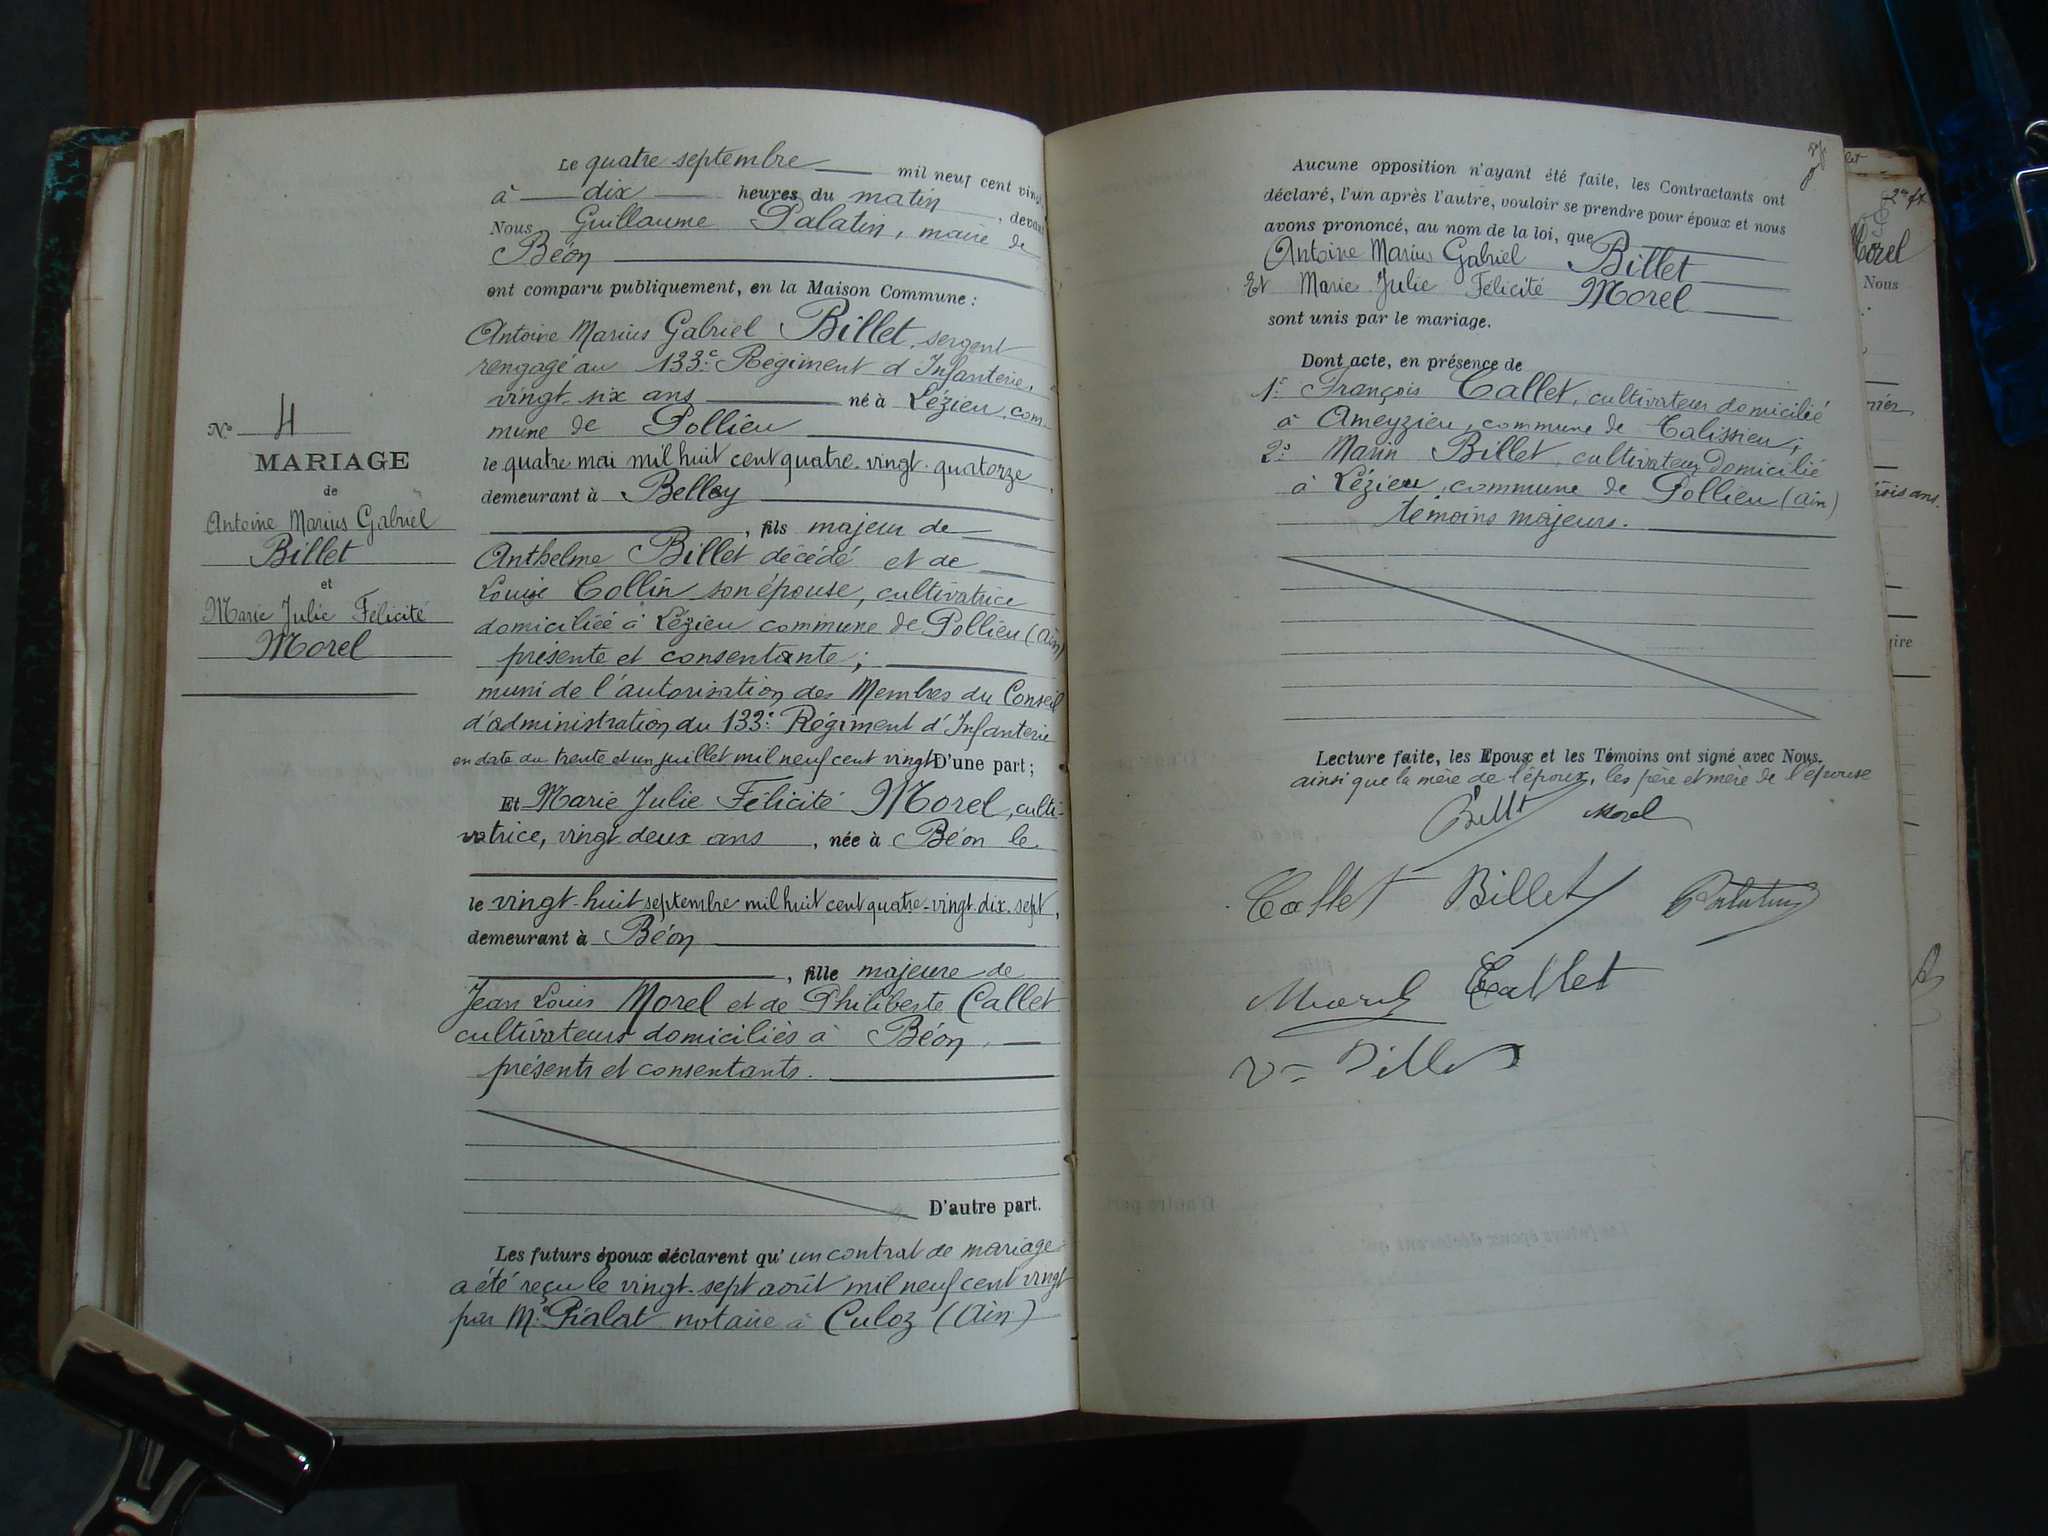 N° 4
MARIAGE
de
Antoine Marius Gabriel
Billet
et
Marie Julie Félicité
Morel
Le quatre septembre mil neuf cent vingt
à dix heures du matin, devant
Nous Guillaume Palatin, maire de
Béon
ont comparu publiquement, en la Maison Commune :
Antoine Marius Gabriel Billet, sergent
rengagé au 133e Régiment d'Infanterie,
vingt-six ans né à Lézieu, com-
mune de Pollieu
le quatre mai mil huit cent quatre-vingt-quatorze,
demeurant à Belley
, fils majeur de
Anthelme Billet décédé et de
Louise Collin son épouse, cultivatrice
domiciliée à Lézieu commune de Pollieu (Ain)
présente et consentante ;
muni de l'autorisation des Membres du Conseil
d'administration du 133e Régiment d'Infanterie
en date du trente et un juillet mil neuf cent vingt D'une part ;
Et Marie Julie Félicité Morel, culti-
vatrice, vingt deux ans, née à Béon le
le vingt-huit septembre mil huit cent quatre-vingt-dix-sept,
demeurant à Béon
, fille majeure de
Jean Louis Morel et de Philiberte Callet
cultivateurs domiciliés à Béon,
présents et consentants.
D'autre part.
Les futurs époux déclarent qu'un contrat de mariage
a été reçu le vingt-sept août mil neuf cent vingt
par Me Pialat notaire à Culoz (Ain)
Aucune opposition n'ayant été faite, les Contractants ont
déclaré, l'un après l'autre, vouloir se prendre pour époux et nous
avons prononcé, au nom de la loi, que
Antoine Marius Gabriel Billet
Et Marie Julie Félicité Morel
sont unis par le mariage.
Dont acte, en présence de
1° François Callet, cultivateur domicilié
à Ameyzieu, commune de Talissieu ;
2° Marin Billet, cultivateur domicilié
à Lézieu, commune de Pollieu (Ain)
témoins majeurs.
Lecture faite, les Epoux et les Témoins ont signé avec Nous.
ainsi que la mère de l'époux, les père et mère de l'épouse
Billet Morel
Callet Billet Palatin
Morel Callet
Ve Billet
Morel
Nous
trois ans.